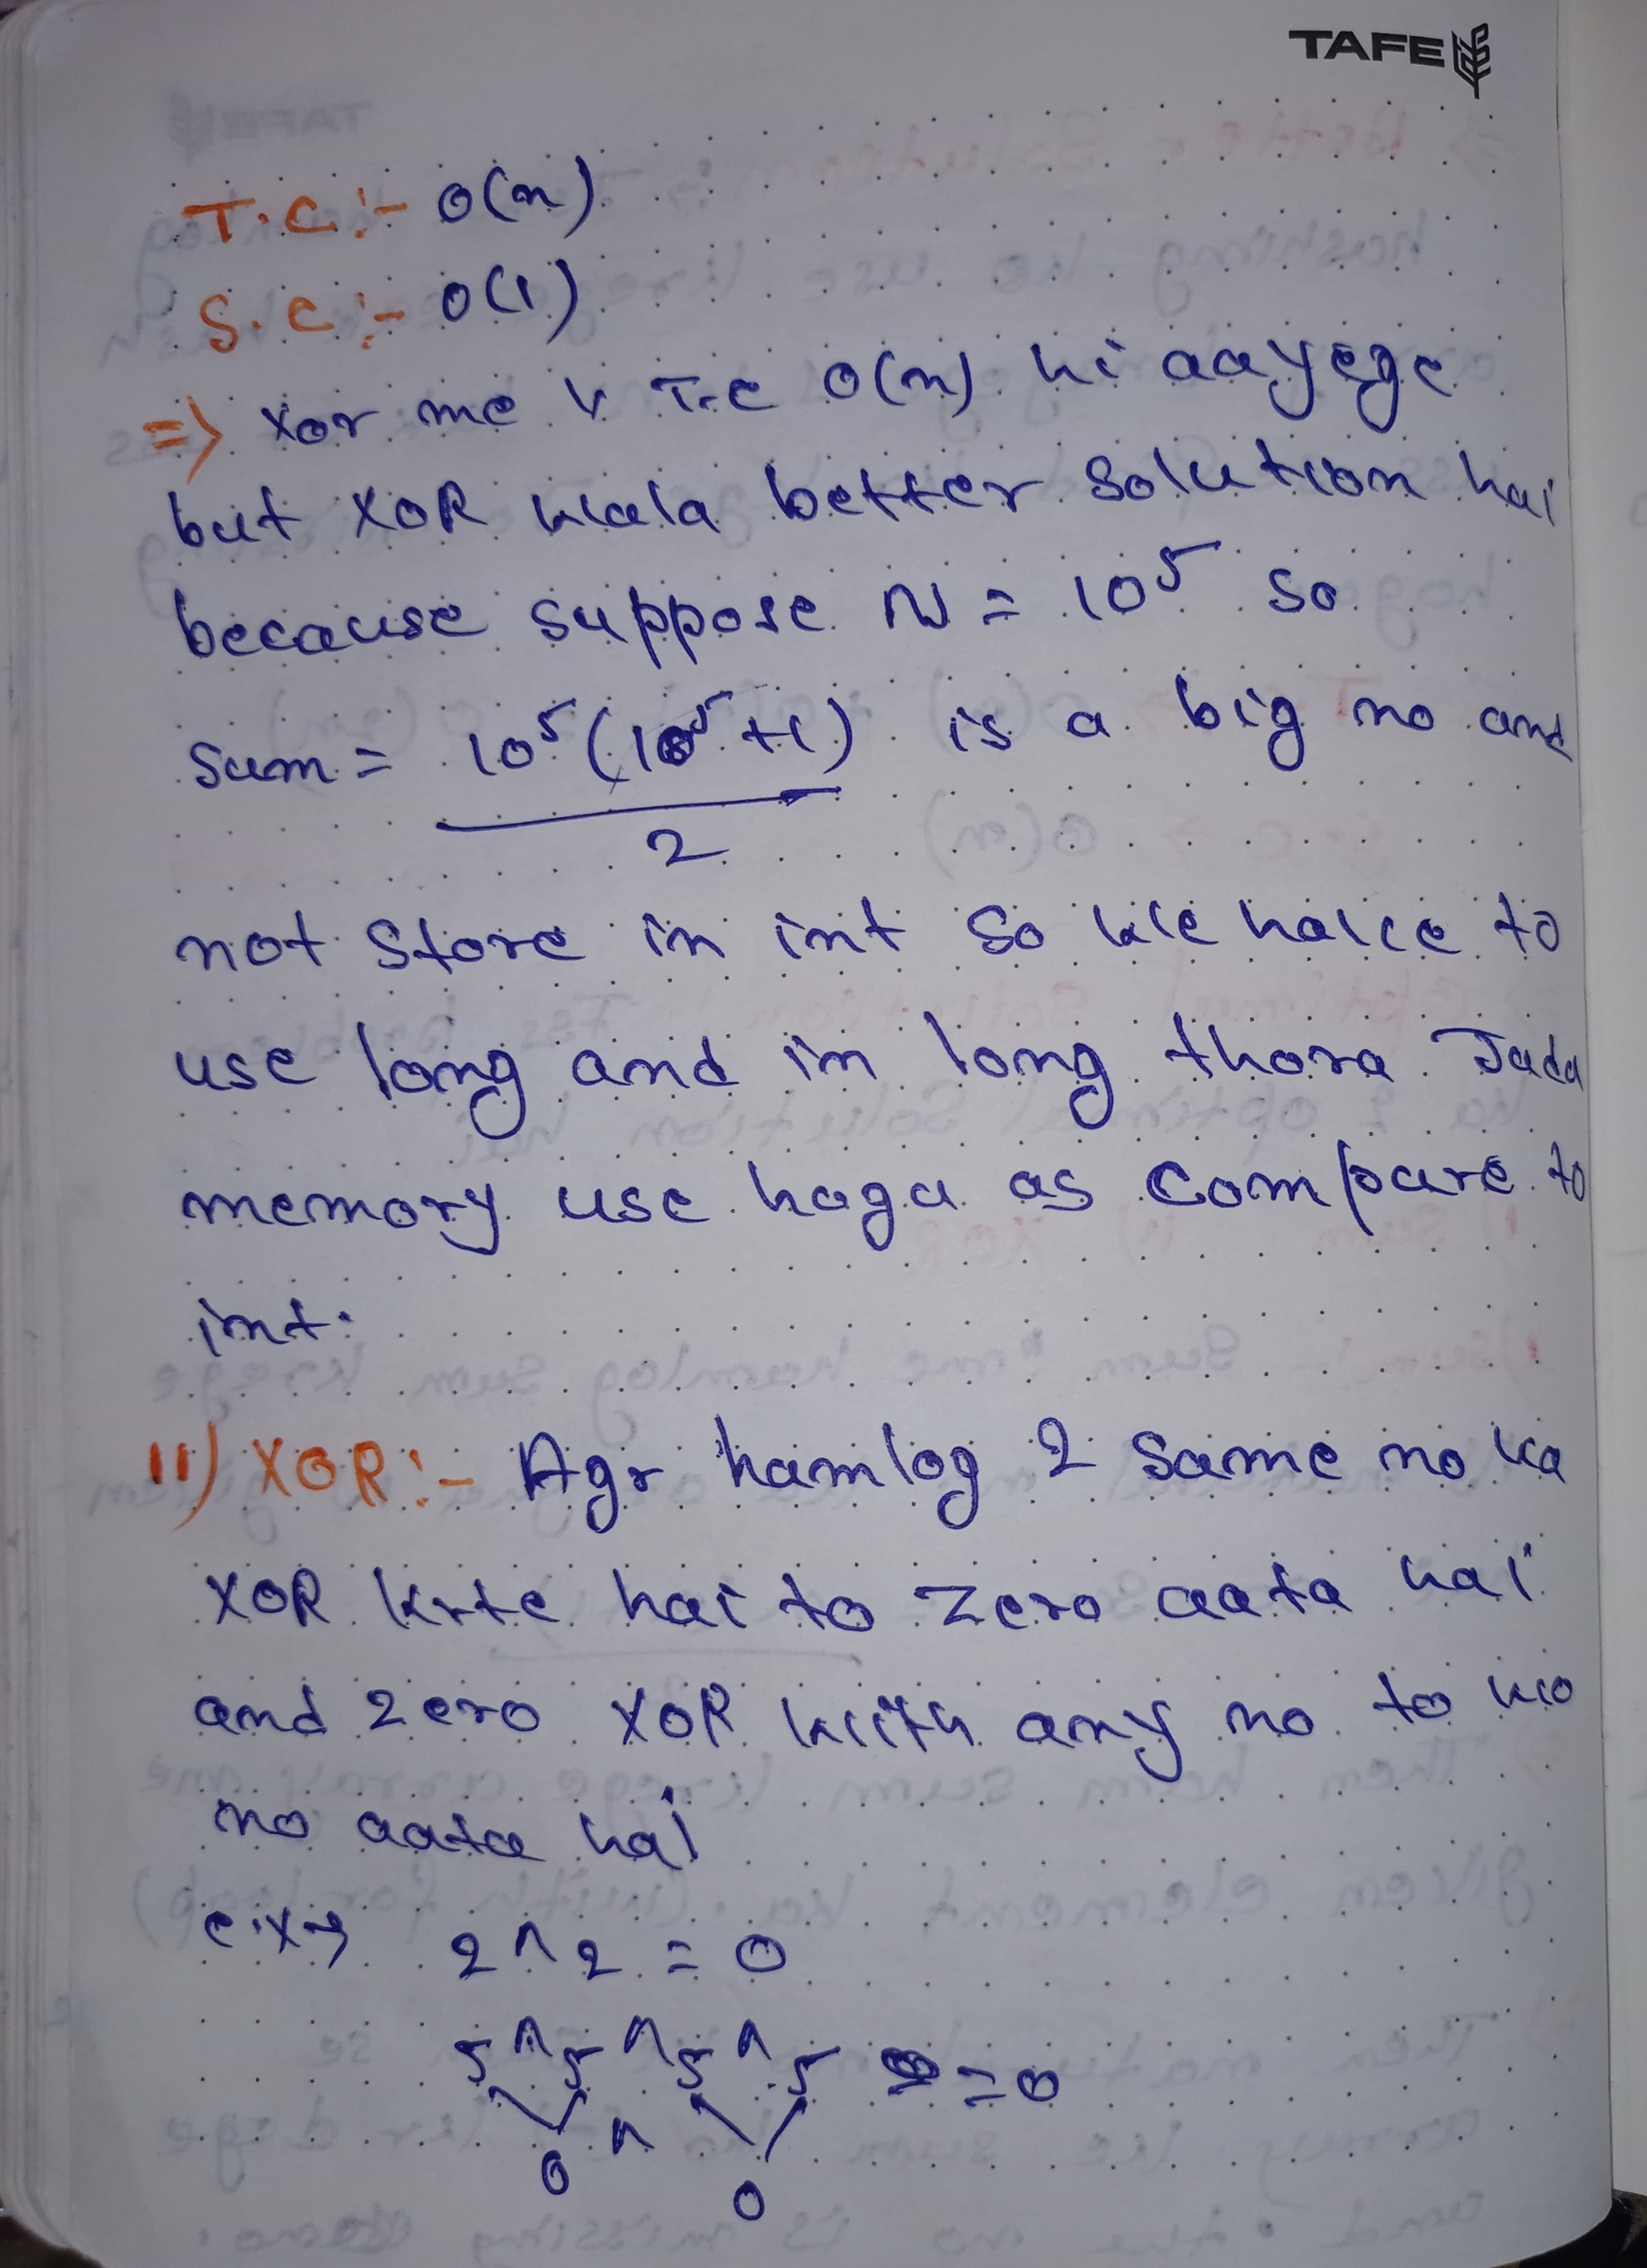 TAFE
T.C :- O(n)
S.C :- O(1)
=> Xor me v T.C O(n) hi aayege
but XOR wala better solution hai
because suppose N = 10^5 so
sum = 10^5 (10^5 + 1) is a big no and
2
not store in int so we have to
use long and in long thora Jada
memory use hoga as compare to
int.
11) XOR :- Agr hamlog 2 same no ka
XOR krte hai to zero aata hai
and zero XOR with any no to wo
no aata hai
ex→ 2 ^ 2 = 0
5 ^ 5 ^ 5 ^ 5 = 0
0 ^ 0